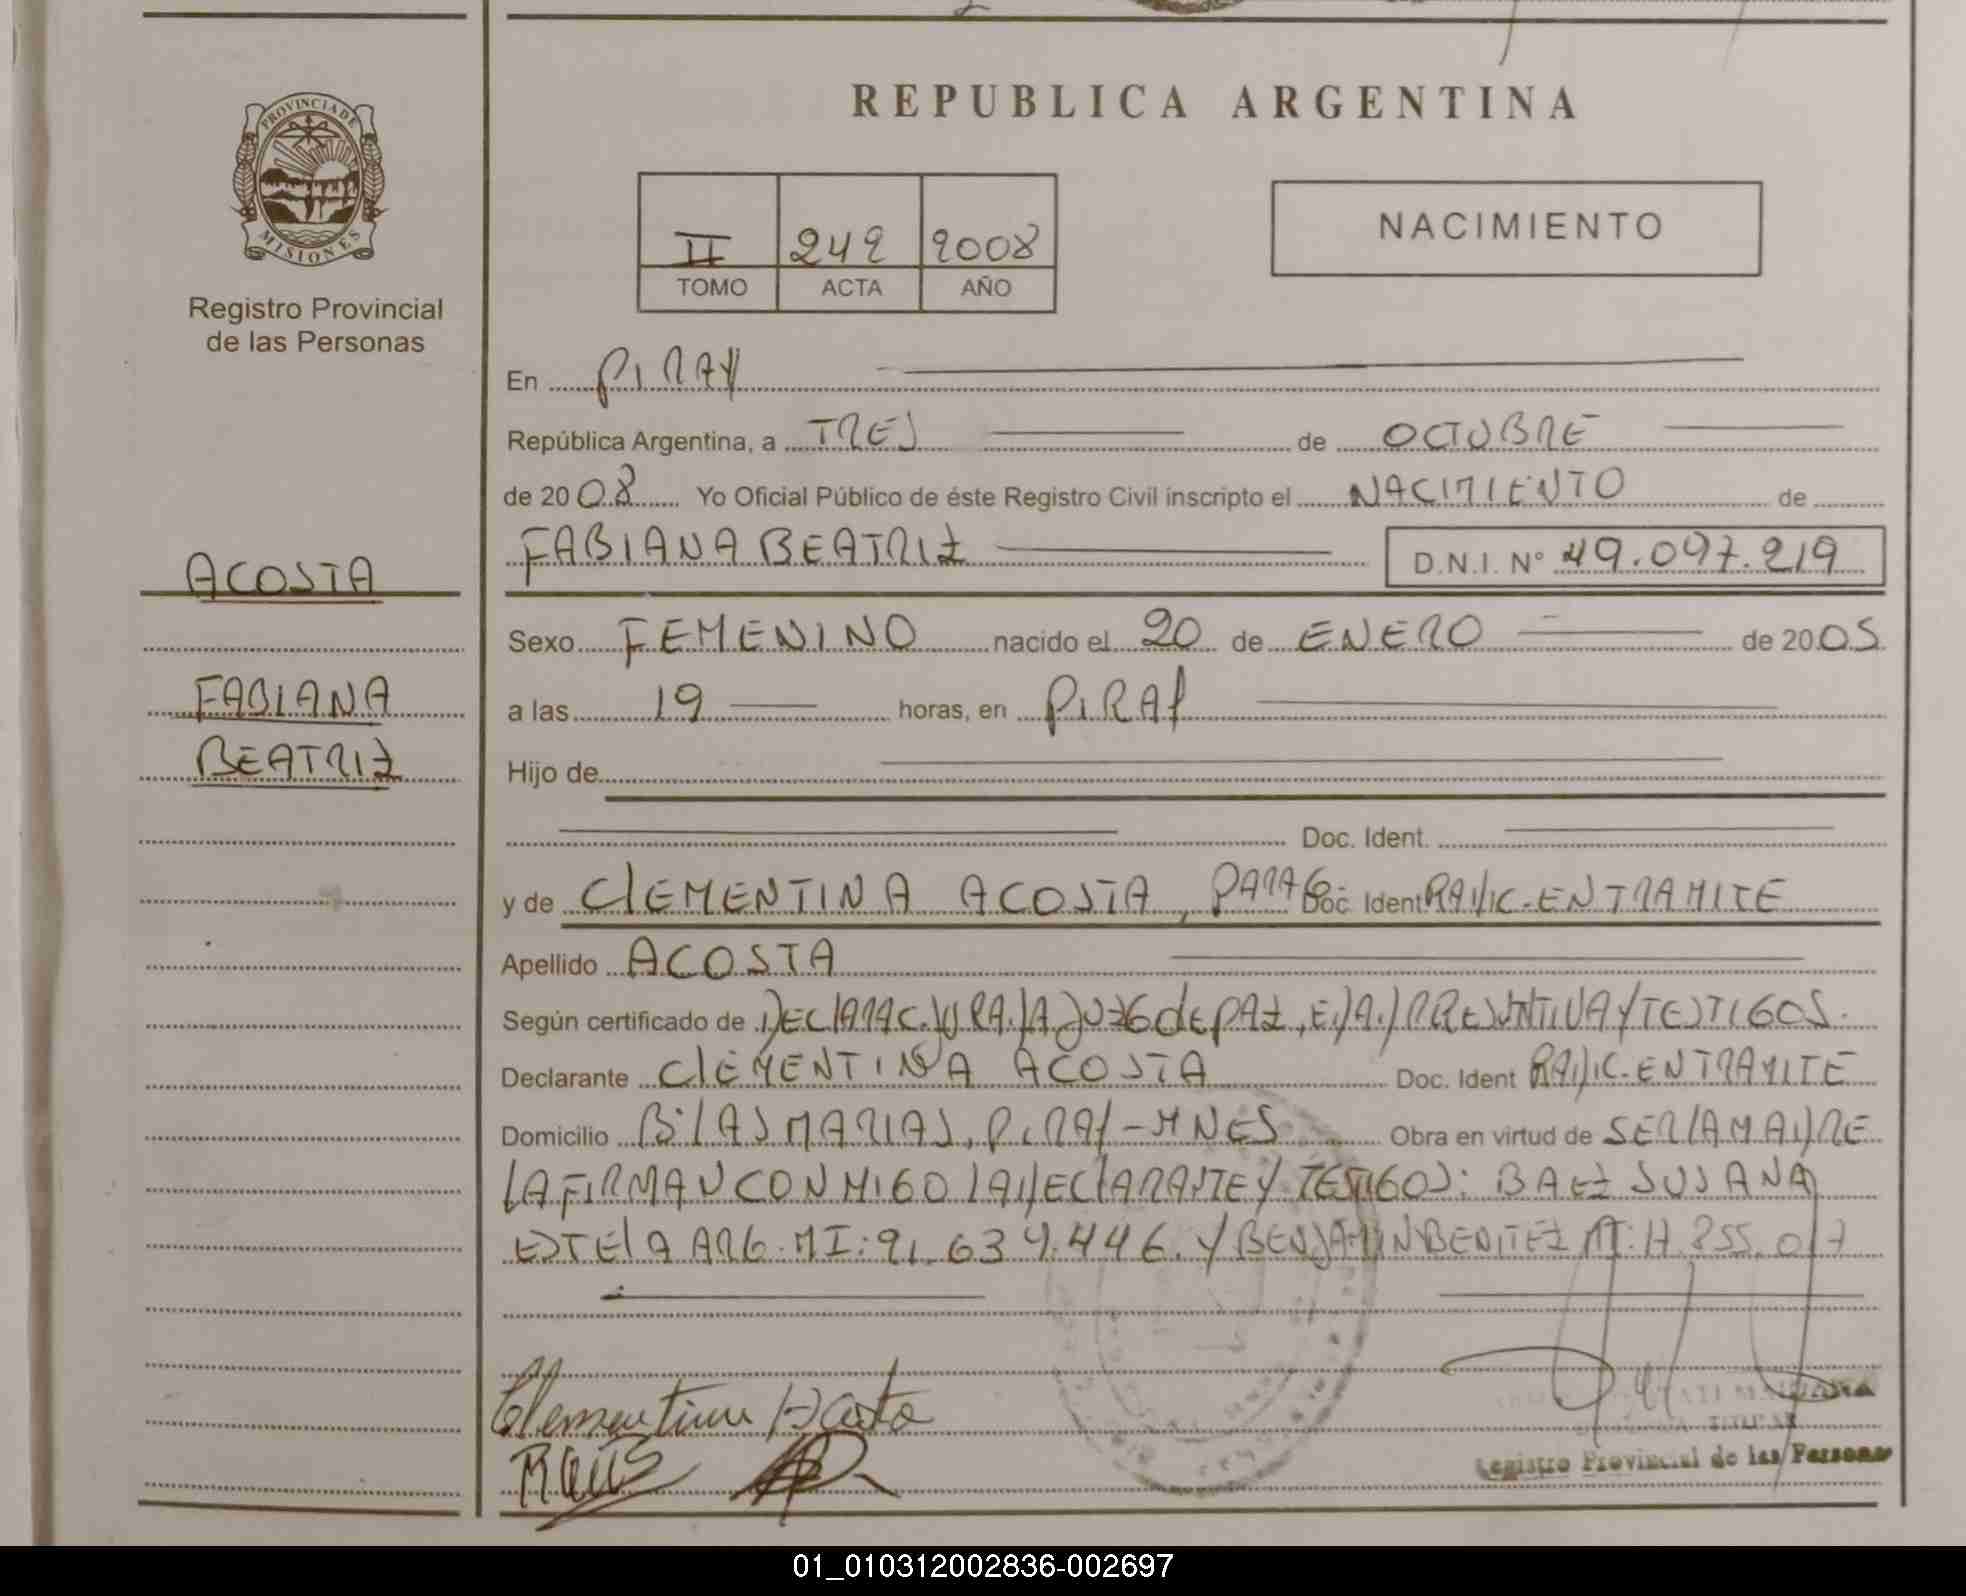 REPUBLICA ARGENTINA
PROVINCIA DE
MISIONES
Registro Provincial
de las Personas
II 242 2008
TOMO ACTA AÑO
NACIMIENTO
En PIRAY
República Argentina, a TRES de OCTUBRE
de 2008 Yo Oficial Público de éste Registro Civil inscripto el NACIMIENTO de
FABIANA BEATRIZ D.N.I. Nº 49.097.219
ACOSTA
FABIANA
BEATRIZ
Sexo FEMENINO nacido el 20 de ENERO de 2005
a las 19 horas, en PIRAY
Hijo de
Doc. Ident.
y de CLEMENTINA ACOSTA, PARAG. Doc. Ident RADIC. EN TRAMITE
Apellido ACOSTA
Según certificado de DECLARAC. JURA. LA JUZG DE PAZ, E.D.A.) PRESUNTIVA Y TESTIGOS.
Declarante CLEMENTINA ACOSTA Doc. Ident RADIC. EN TRAMITE
Domicilio Bº LAS MARIAS, PIRAY-MNES Obra en virtud de SER LA MADRE
LA FIRMAN CONMIGO LA DECLARANTE Y TESTIGOS: BAEZ SUSANA
ESTELA ARG. MI: 91.634.446. Y BENJAMIN BENITEZ
Clementina Acosta
TITULAR
Registro Provincial de las Personas
01_010312002836-002697